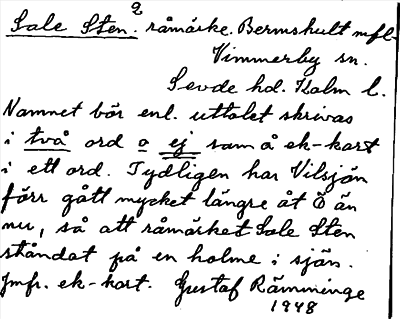 Sale Sten. råmärke. Bermshult mfl.
Vimmerby sn.
Sevde hd. Kalm l.
Namnet bör enl. uttalet skrivas
i två ord o ej som å ek-kart
i ett ord. Tydligen har Vilsjön
förr gått mycket längre åt Ö än
nu, så att råmärket Sale Sten
ståndat på en holme i sjön.
Jmfr. ek-kart. Gustaf Rämminge
1948